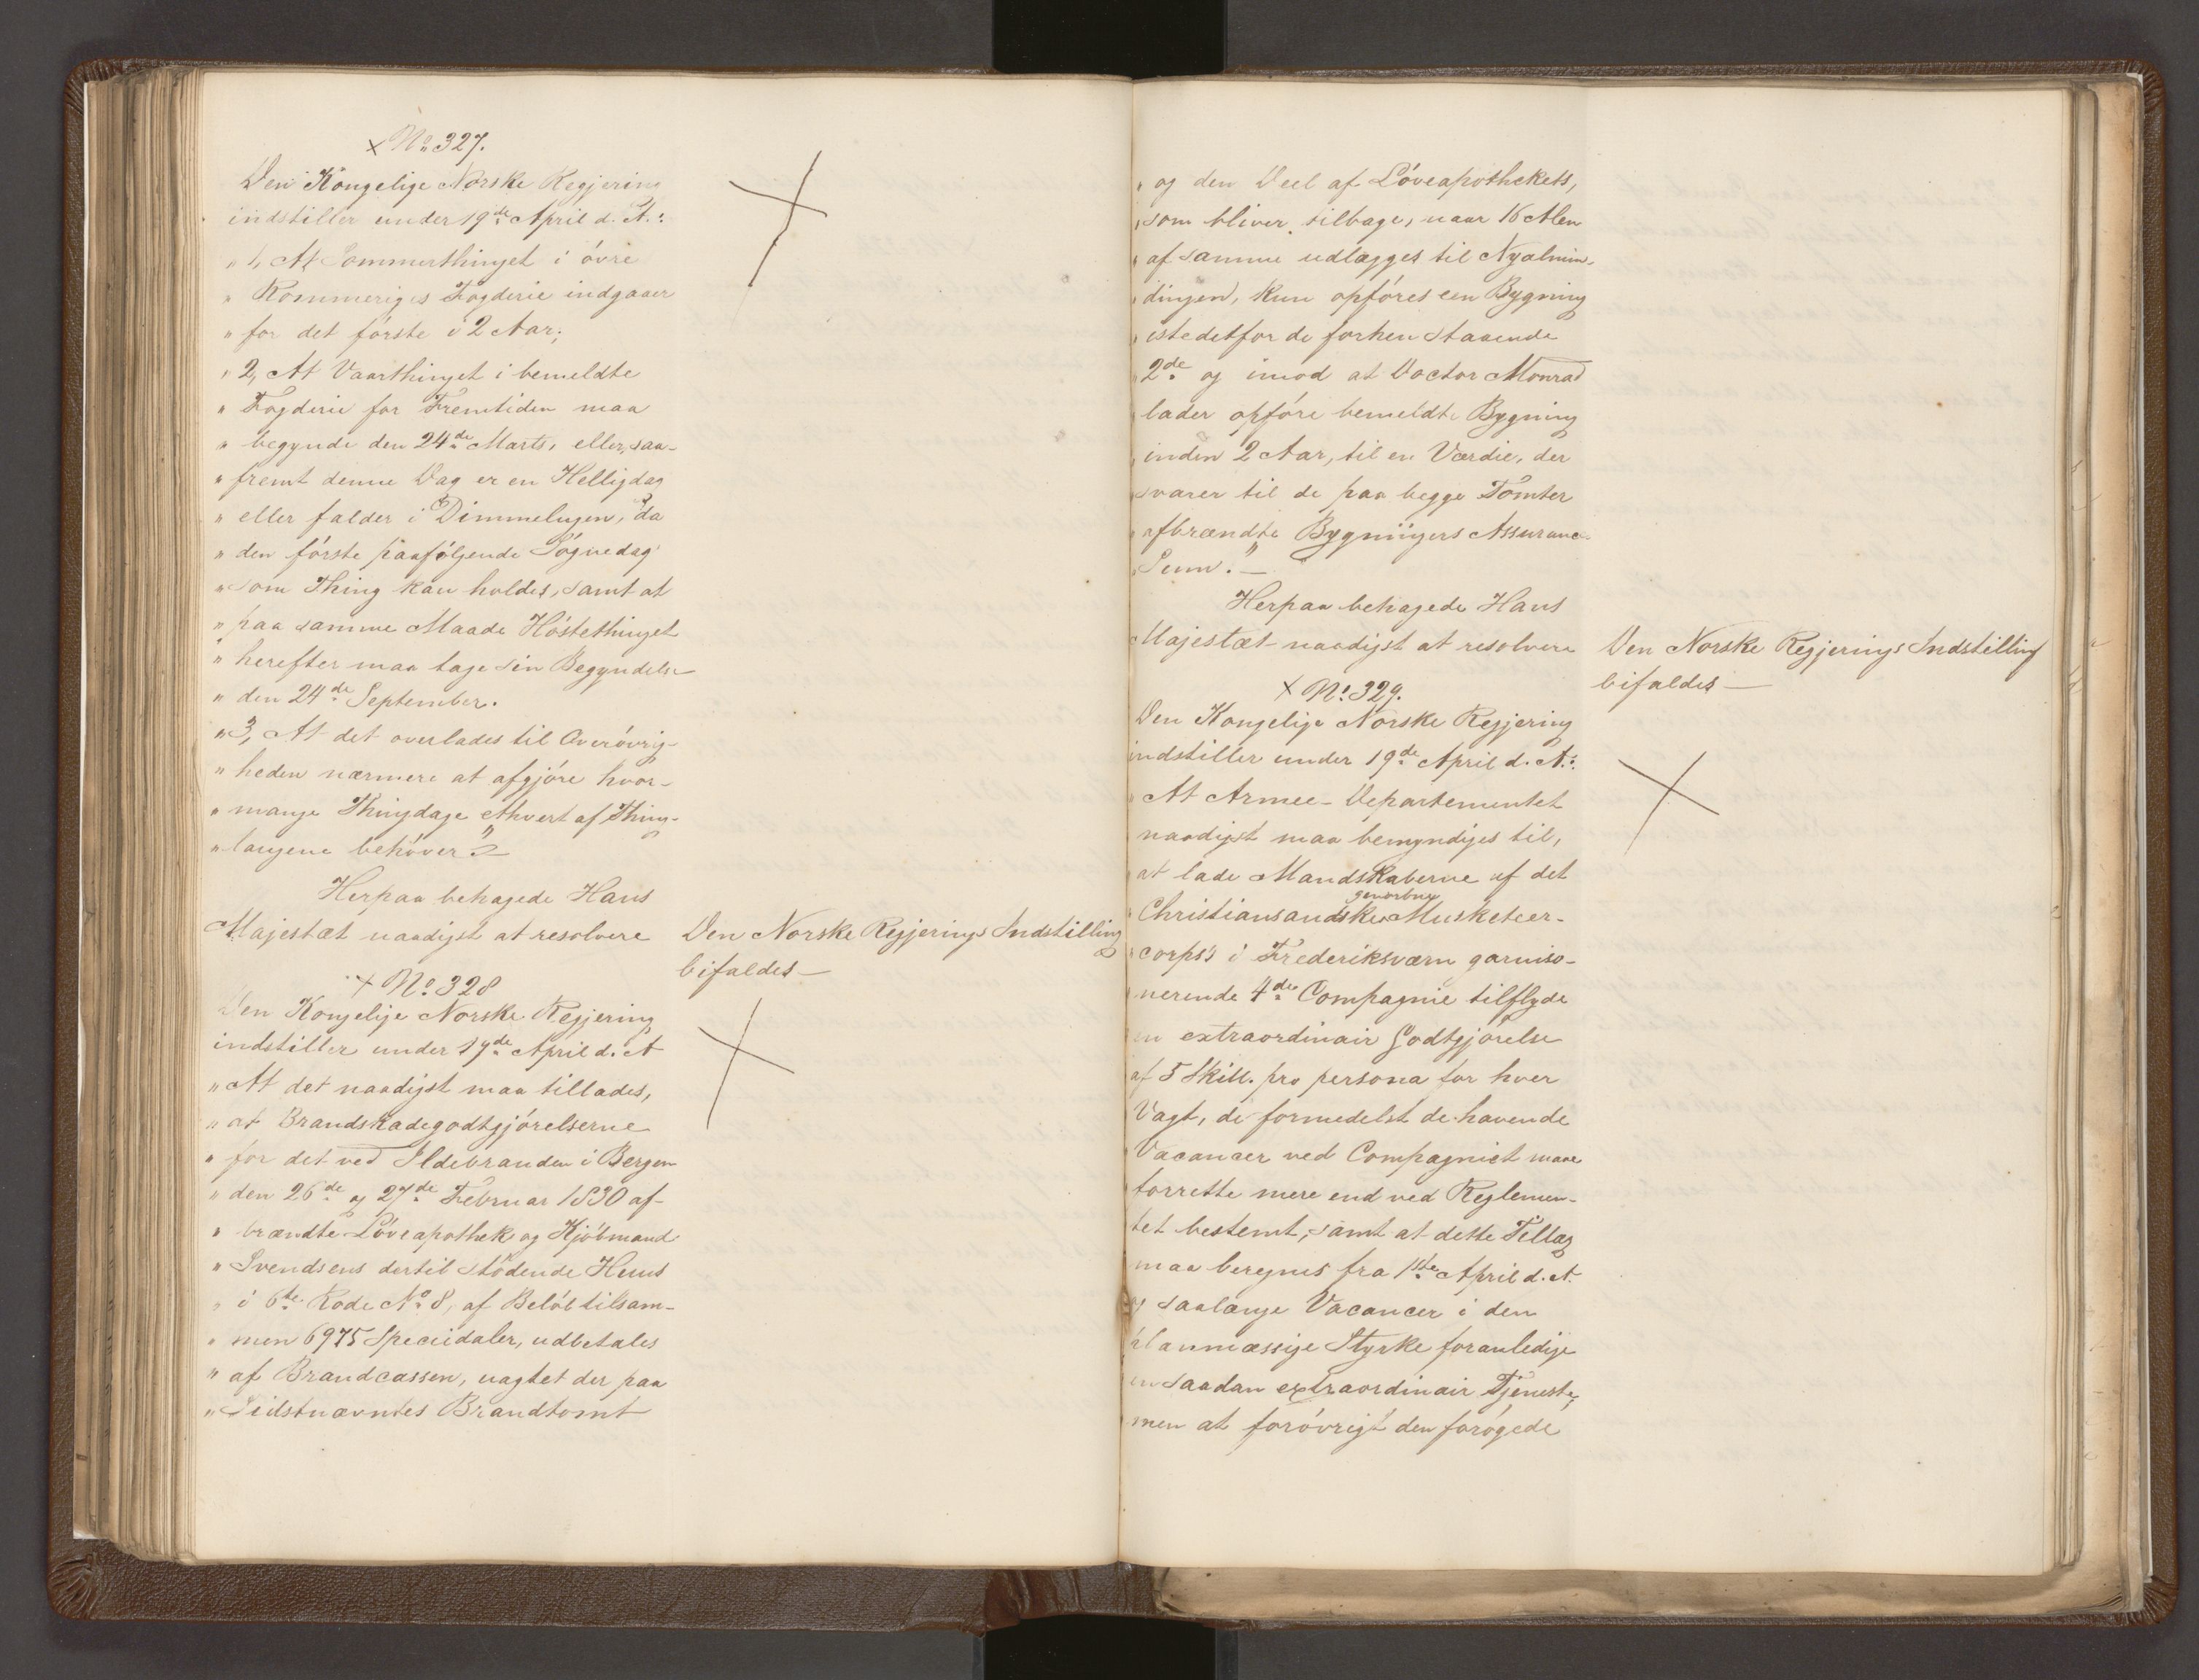 × No 327.
Den Kongelige Norske Regjering
indstiller under 19de April d. A.:
" 1, At Sommerthinget i övre
" Rommeriges Fogderie indgaaer
" for det förste i 2 Aar;
" 2, At Vaarthinget i bemeldte
" Fogderie for Fremtiden maa
" begynde den 24de Marts, eller, saa-
" fremt denne Dag er en Helligdag
" eller falder i Dimmelugen, da
" den förste paafölgende Sögnedag
" som Thing kan holdes, samt at
" paa samme Maade Höstethinget
" herefter maa tage sin Begyndelse
" den 24de September.
" 3, At det overlades til Overövrig-
" heden nærmere at afgjöre hvor-
" mange Thingdage ethvert af Thing-
" lagene behöver." —
Herpaa behagede Hans
Majestæt naadigst at resolvere
Den Norske Regjerings Indstilling
bifaldes —
× No 328
Den Kongelige Norske Regjering
indstiller under 19de April d. A
" At det naadigst maa tillades,
" at Brandskadegodtgjörelserne
" for det ved Ildebranden i Bergen
" den 26de og 27de Februar 1830 af-
" brændte Löveapothek og Kjöbmand
" Svendsens dertil stödende Huus
" i 6te Rode No 8, af Belöb tilsam-
" men 6975 Speciedaler, udbetales
" af Brandcassen, uagtet der paa
" Sidstnævntes Brandtomt
" og den Deel af Löveapothekets,
" som bliver tilbage, naar 16 Alen
" af samme udlægges til Nyalmin-
" dingen, kun opföres een Bygning
" istedetfor de forhen staaende
" 2de og imod at Doctor Monrad
" lader opföre bemeldte Bygning
" inden 2 Aar, til en Værdie, der
" svarer til de paa begge Tomter
" afbrændte Bygningers Assurance-
" Sum." —
Herpaa behagede Hans
Majestæt naadigst at resolvere
Den Norske Regjerings Indstilling
bifaldes —
× No 329.
Den Kongelige Norske Regjering
indstiller under 19de April d. A.:
" At Armee-Departementet
naadigst maa bemyndiges til,
at lade Mandskaberne af det
gevorbne
" Christiansandske Musketeer-
" corps's i Frederiksværn garniso-
nerende 4de Compagnie tilflyde
en extraordinair Godtgjörelse
af 5 Skill. pro persona for hver
Vagt, de formedelst de havende
Vacancer ved Compagniet maae
forrette mere end ved Reglemen-
tet bestemt, samt at dette Tillæg
maa beregnes fra 1ste April d. A.
og saalænge Vacancer i den
planmæssige Styrke foranledige
en saadan extraordinair Tjeneste;
men at forövrigt den forögede